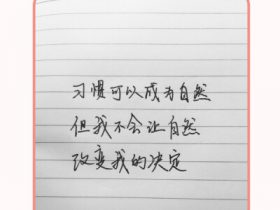 习惯可以成为自然
但我不会让自然
改变我的决定